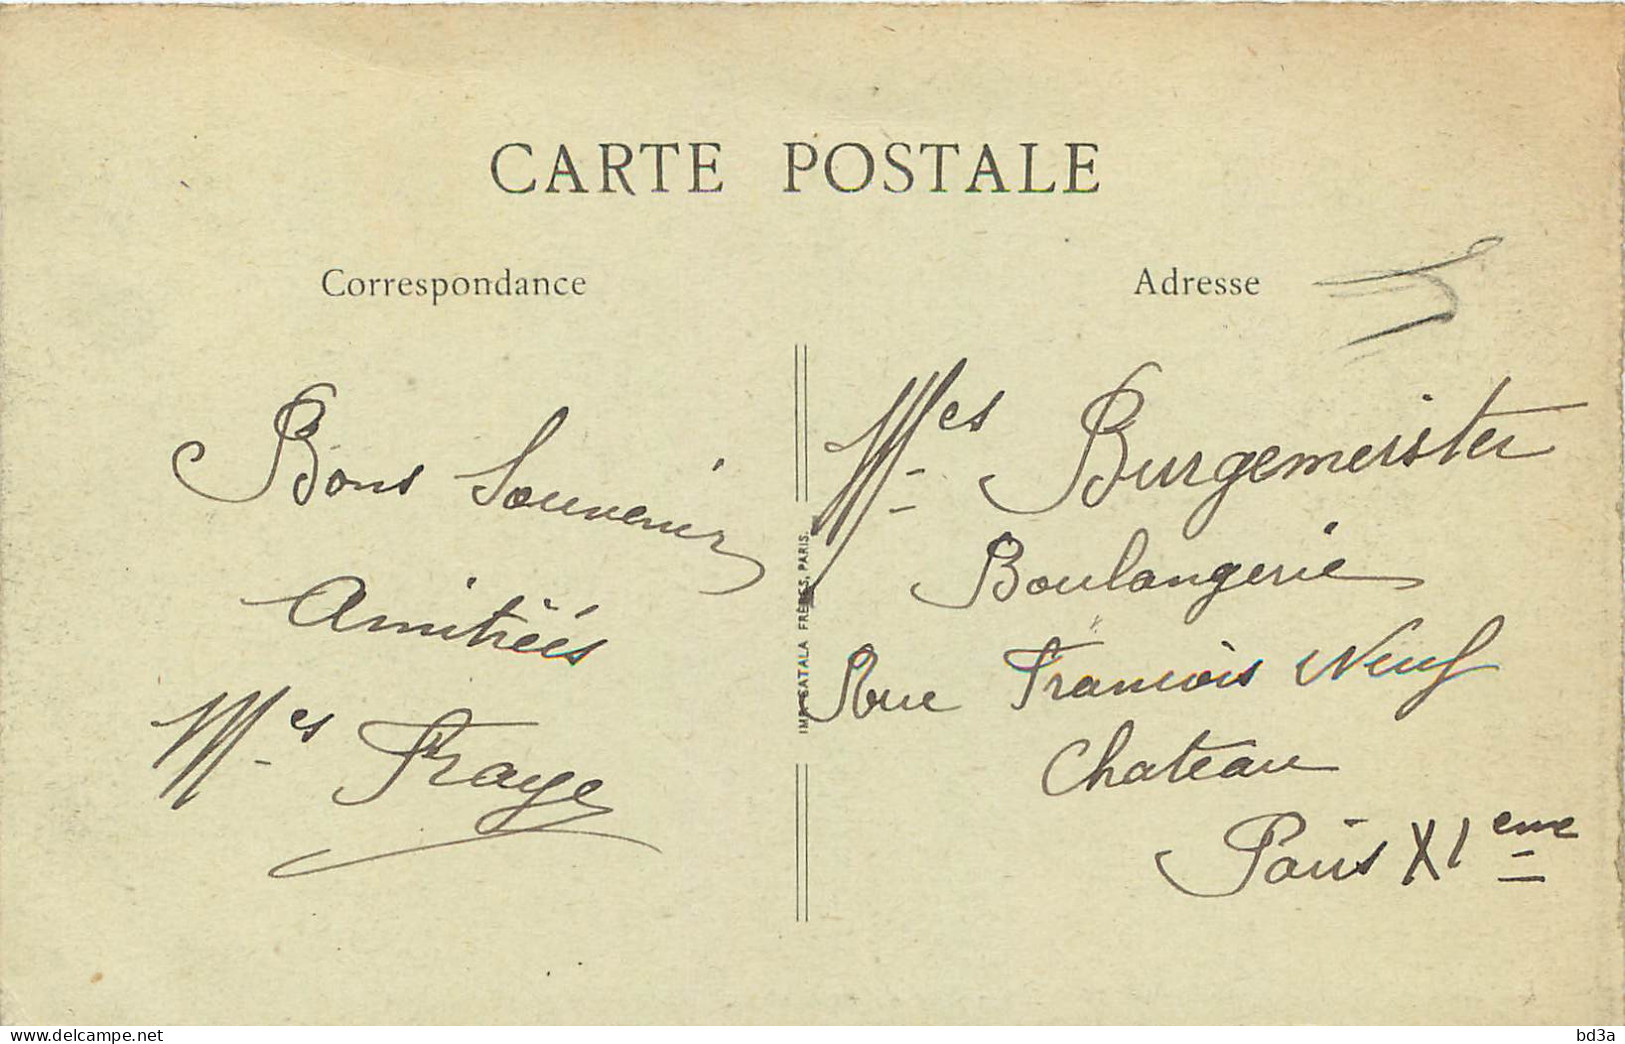 CARTE POSTALE
Correspondance
Adresse
Bons Souvenir
Amitiéés
Mes Fraye
IMP. CATALA FRÈRES, PARIS.
Mes Burgemeister
Boulangerie
Rue Francois Neuf
Chateau
Paris XIeme
delcampe.net
bd3a